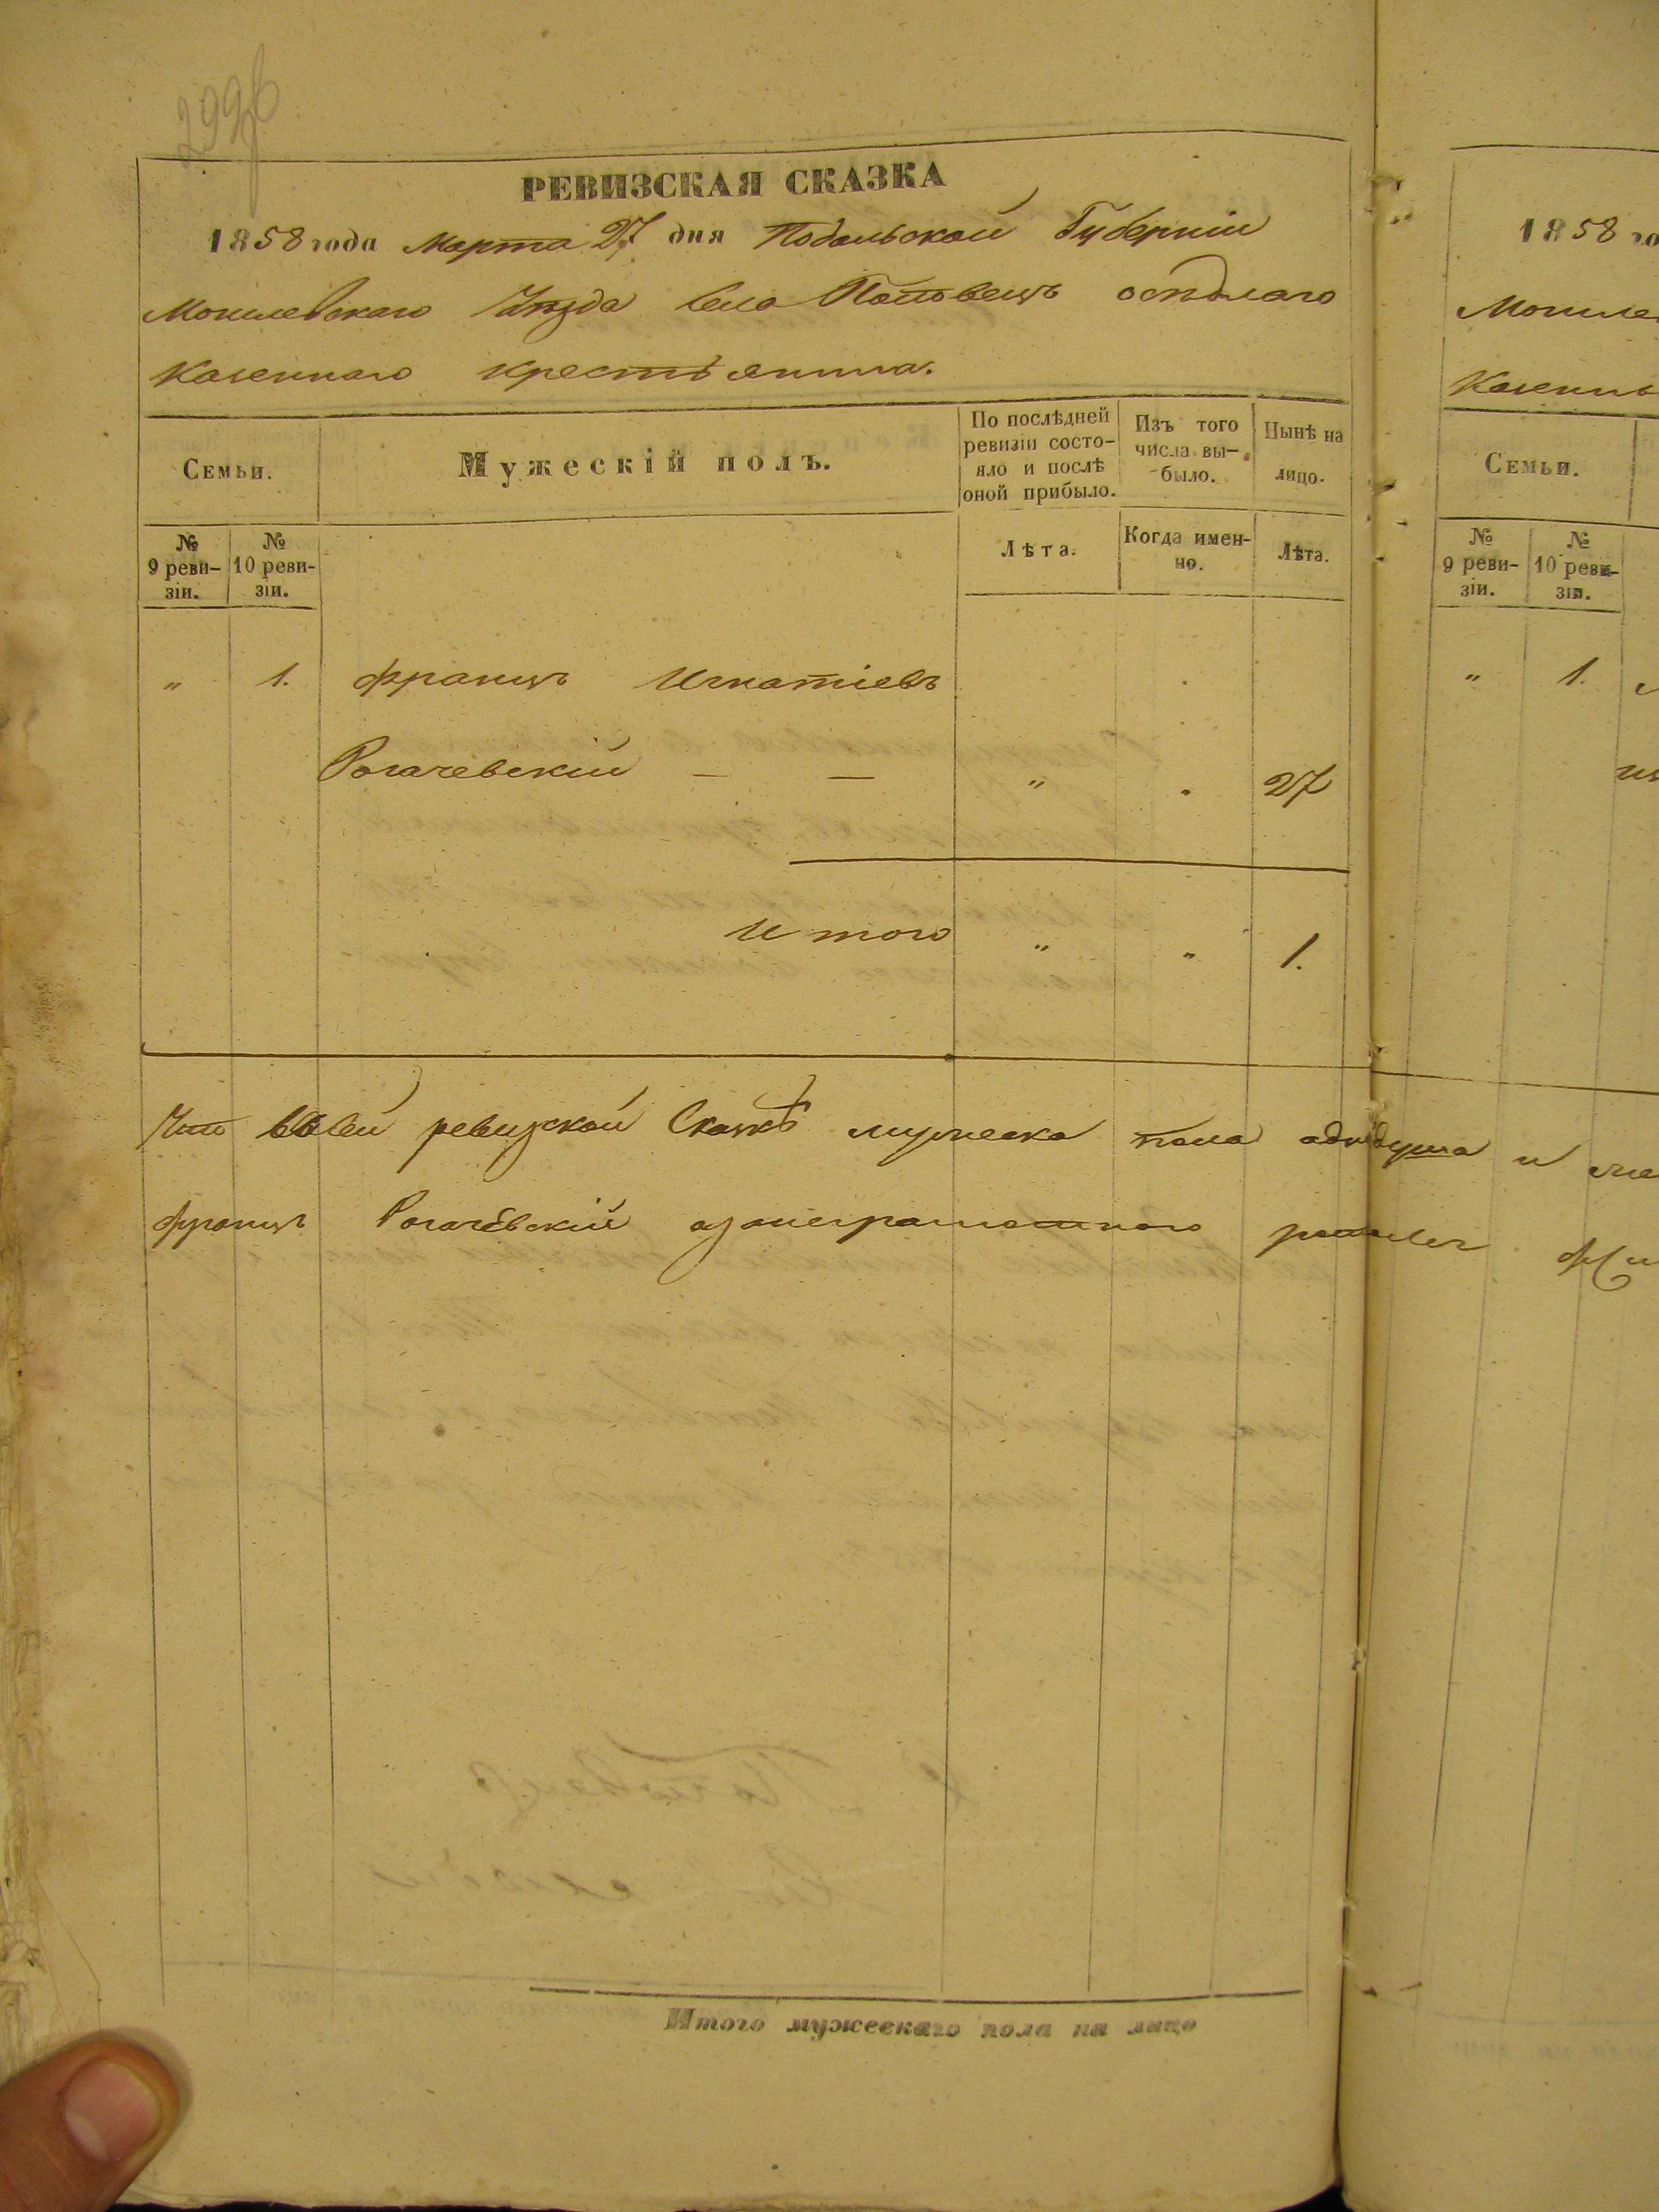 299б
РЕВИЗСКАЯ СКАЗКА
1858 года Марта 27 дня Подольской Губерніи
Могилевскаго Уѣзда села Поповецъ осѣдлаго
Казеннаго крестьянина.
Семьи.
Мужескій полъ.
По послѣдней ревизіи состо-
яло и послѣ
оной прибыло.
Изъ того
числа вы-
было.
Нынѣ на
лицо.
№
9 реви-
зіи.
№
10 реви-
зіи.
Лѣта.
Когда имен-
но.
Лѣта.
" 1. Францъ Игнатіевъ
Рогачевскій — — " 27
Итого " " 1.
Что въ сей ревизской Сказкѣ мужеска пола одна душа и
Францъ Рогачевскій а за неграмотнаго
Итого мужескаго пола на лицо
1858 го
Могиле
Казенн
Семьи.
№
9 реви-
зіи.
№
10 реви-
зіи.
" 1.